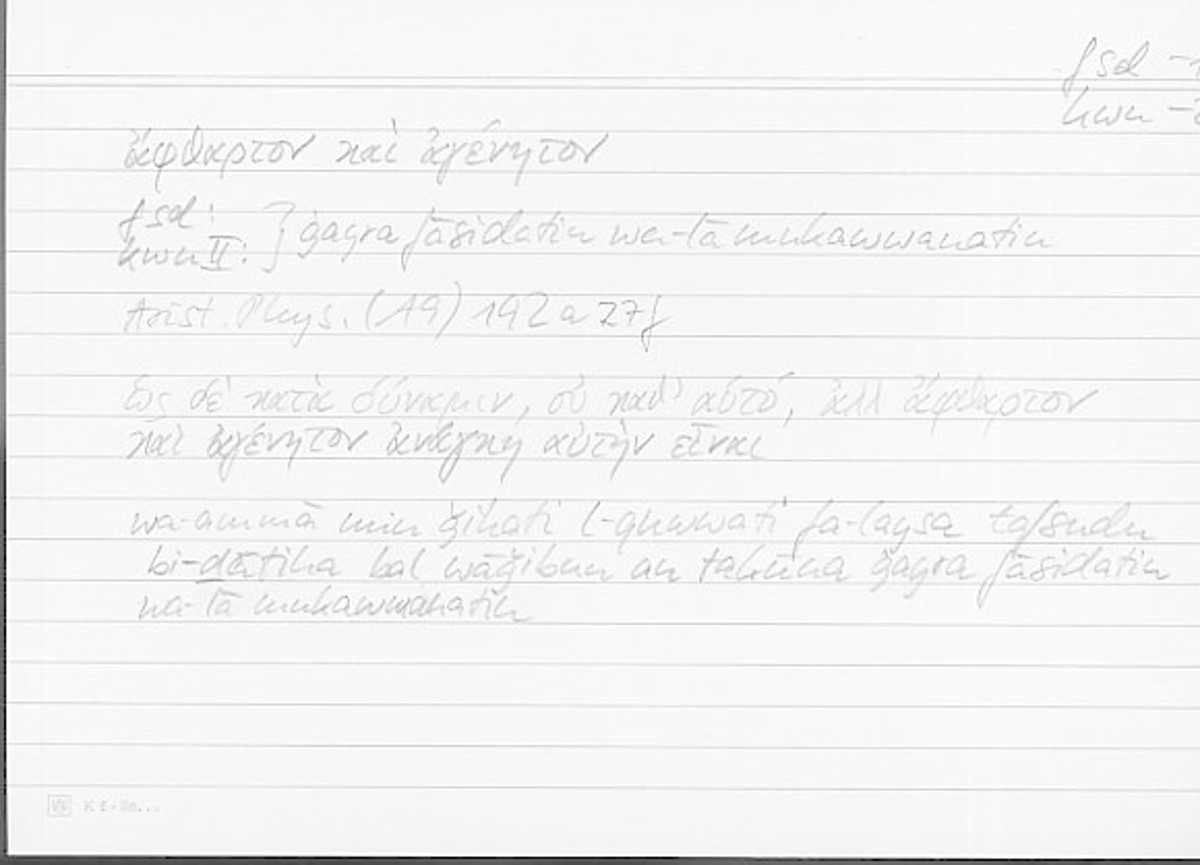 fsd -1
kwn -2
ἄφθαρτον καὶ ἀγένητον
fsd:
kwn II: } ġayra fāsidatin wa-lā mukawwanatin
Arist. Phys. (A9) 192a27f
ὡς δὲ κατὰ δύναμιν, οὐ καθ' αὑτό, ἀλλ' ἄφθαρτον
καὶ ἀγένητον ἀνάγκη αὐτὴν εἶναι
wa-ammā min ǧihati l-quwwati fa-laysa tafsudu
bi-ḏātiha bal wāǧibun an takūna ġayra fāsidatin
wa-lā mukawwanatin